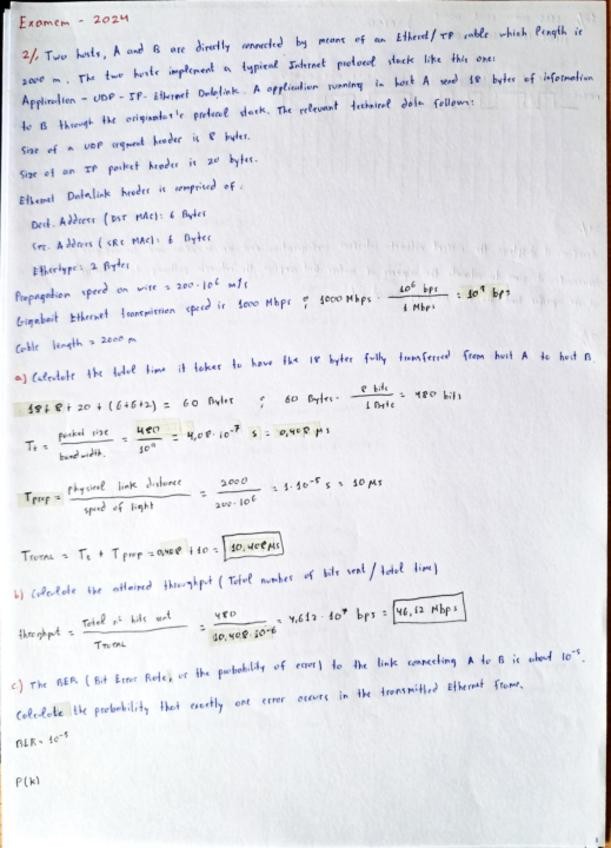 Examen - 2024
2/. Two hosts, A and B are directly connected by means of an Ethernet/TP cable which length is
2000 m. The two hosts implement a typical Internet protocol stack like this one:
Application - UDP - IP - Ethernet Datalink. A application running in host A send 18 bytes of information
to B through the originator's protocol stack. The relevant technical data follow:
Size of a UDP segment header is 8 bytes.
Size of an IP packet header is 20 bytes.
Ethernet Datalink header is comprised of:
Dest. Address (DST MAC): 6 Bytes
Src. Address (SRC MAC): 6 Bytes
Ethertype: 2 Bytes
Propagation speed on wire = 200·10⁶ m/s
Gigabait Ethernet transmission speed is 1000 Mbps ; 1000 Mbps · 10⁶ bps / 1 Mbps = 10⁹ bps
Cable length = 2000 m
a) Calculate the total time it takes to have the 18 byte fully transferred from host A to host B.
18+8+20+(6+6+2) = 60 Bytes ; 60 Bytes · 8 bits / 1 Byte = 480 bits
Tt = packet size / bandwidth. = 480 / 10⁹ = 4,08·10⁻⁷ s = 0,408 µs
Tprop = physical link distance / speed of light = 2000 / 200·10⁶ = 1·10⁻⁵ s = 10 µs
TTOTAL = Tt + Tprop = 0,408 + 10 = 10,408 µs
b) Calculate the attained throughput (Total number of bits sent / total time)
throghput = Total nº bits sent / TTOTAL = 480 / 10,408·10⁻⁶ = 4,612·10⁷ bps = 46,12 Mbps
c) The BER (Bit Error Rate, or the probability of error) to the link connecting A to B is about 10⁻⁵.
Calculate the probability that exactly one error occurs in the transmitted Ethernet frame.
BER = 10⁻⁵
P(k)